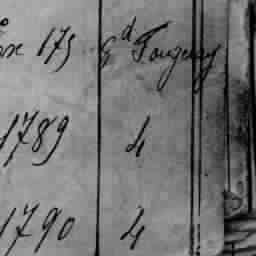 175 Gd Fougeray
1789 4
1790 4